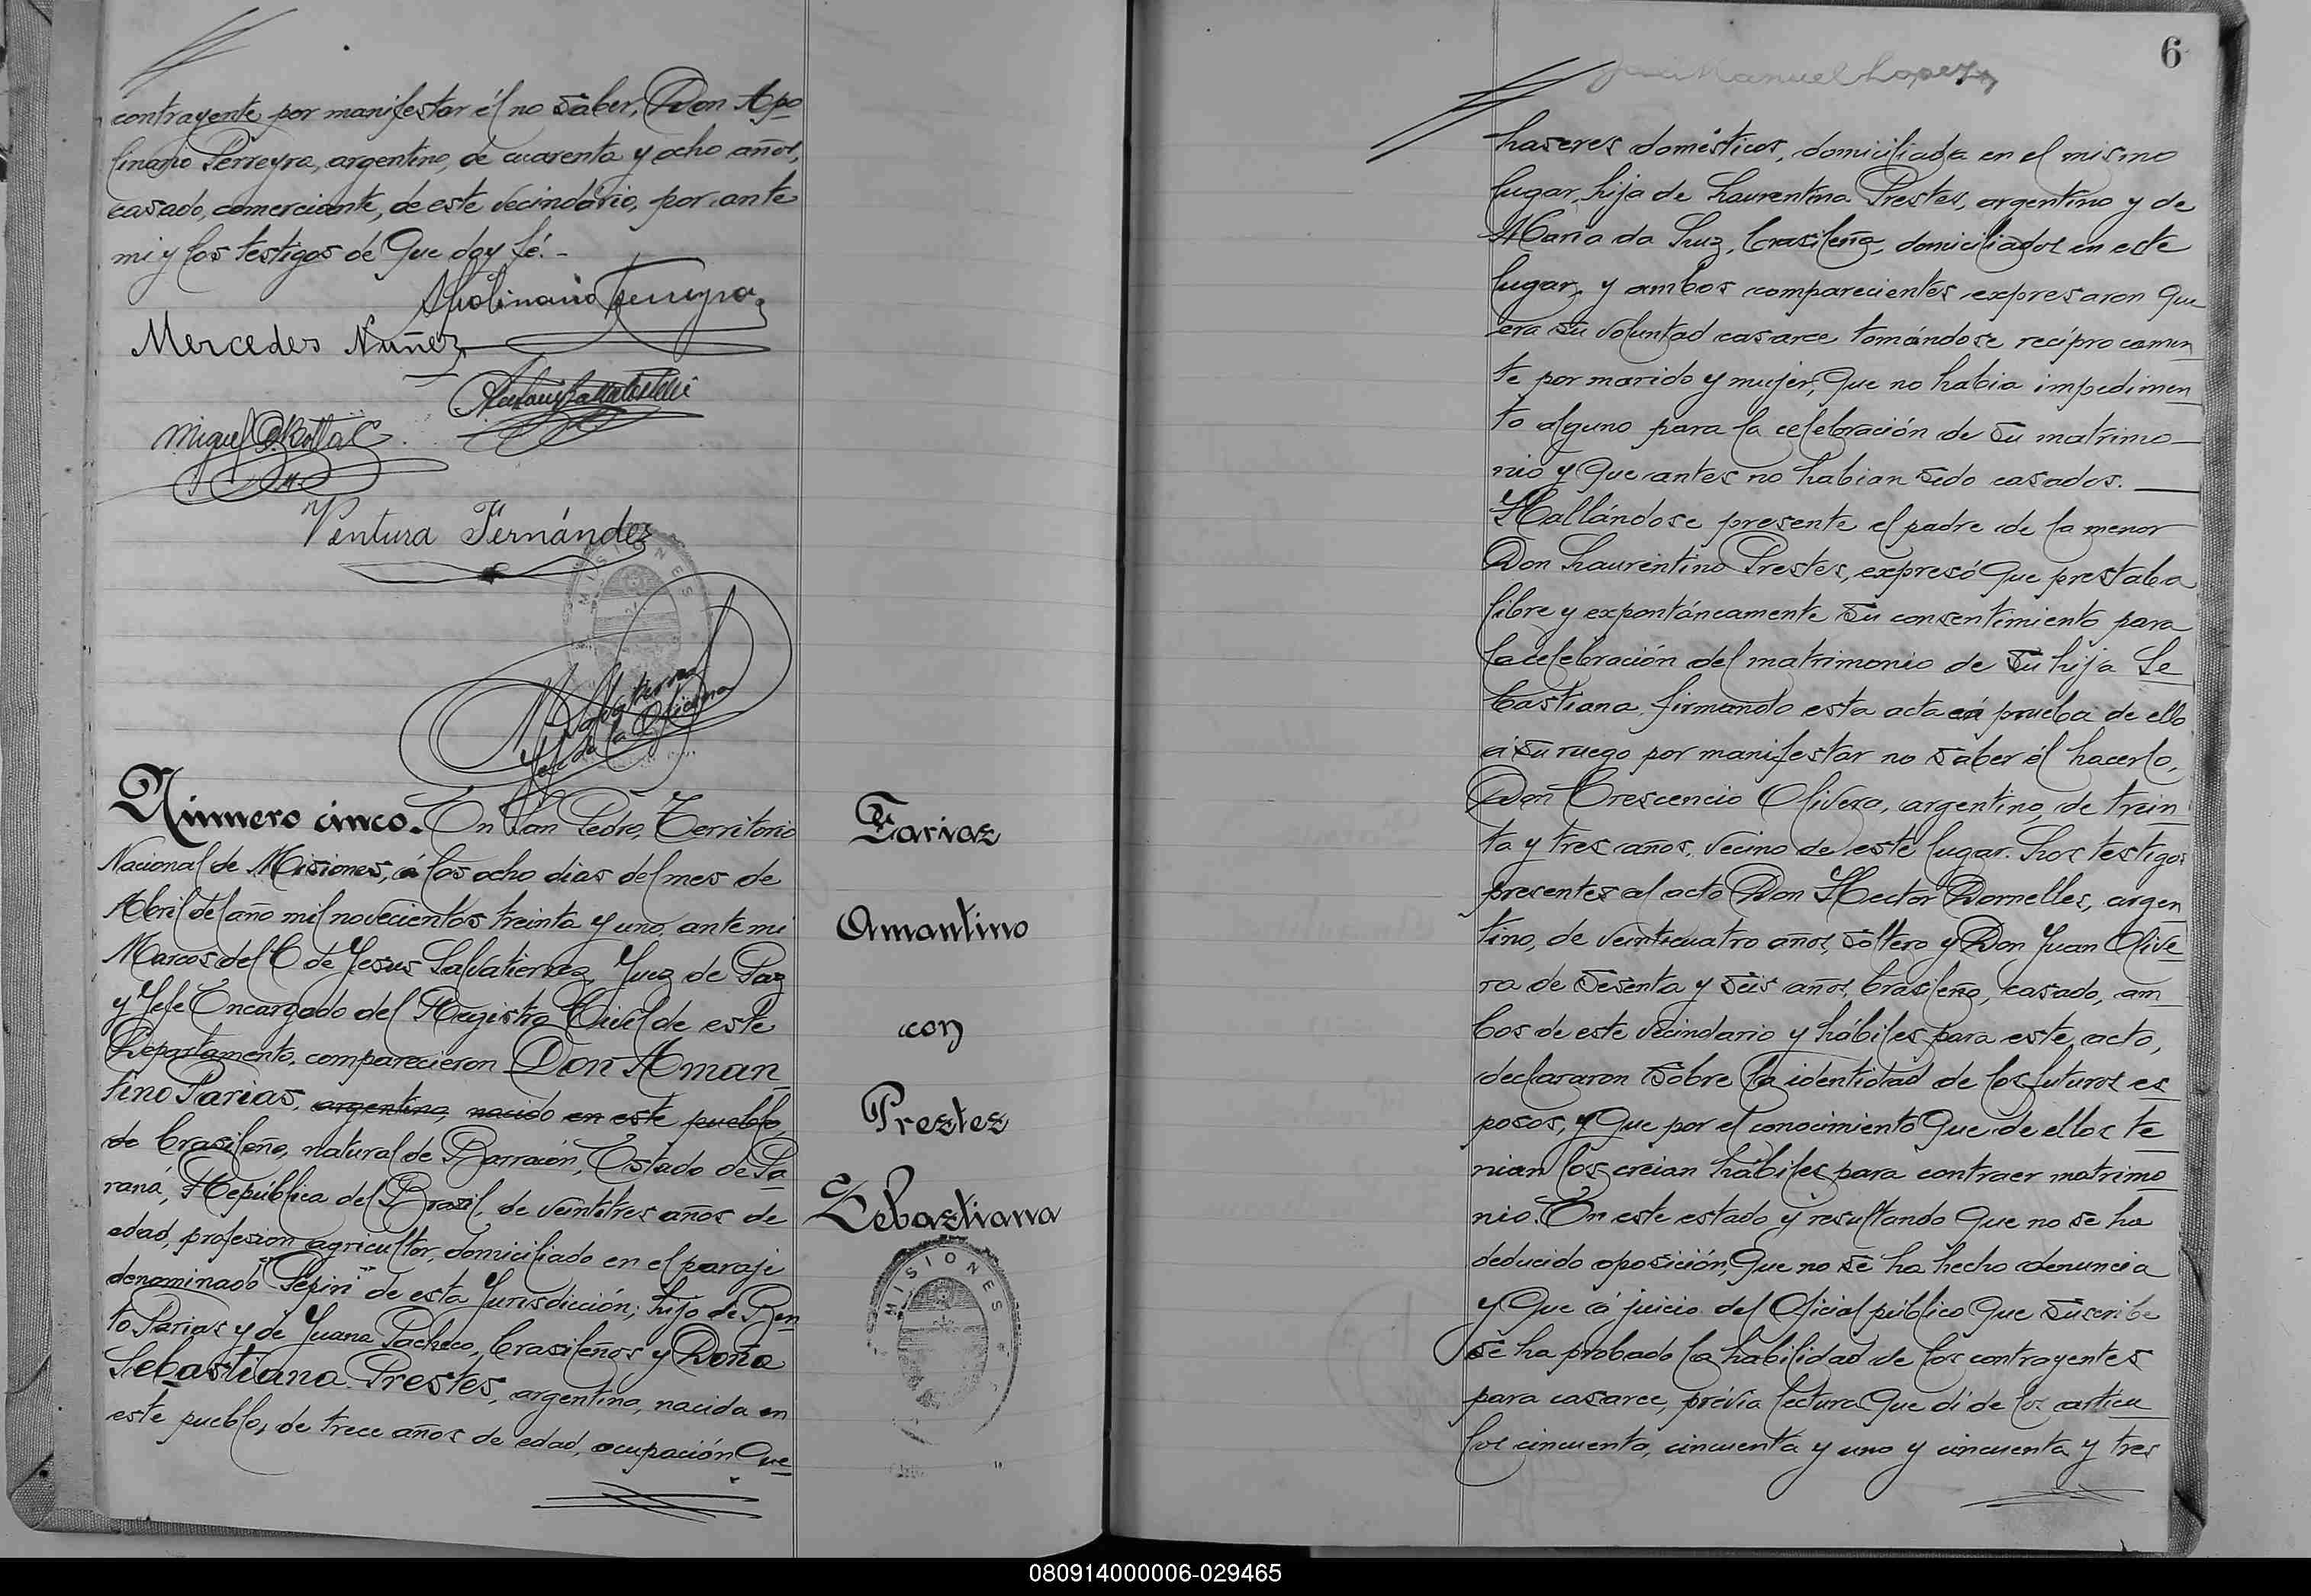 contrayente por manifestar él no saber, Don Apo
linario Ferreyra, argentino, de cuarenta y ocho años,
casado, comerciante, de este vecindario, por ante
mi y los testigos de que doy fé.-
Apolinario Ferreyra
Mercedes Nuñez
Miguel
Ventura Fernández
MISIONES
M Salvatierra
Jefe de la Oficina
Número cinco. En San Pedro, Territorio
Nacional de Misiones, á los ocho dias del mes de
Abril del año mil novecientos treinta y uno, ante mi
Marcos del C de Jesus Salvatierra, Juez de Paz
y Jefe Encargado del Registro Civil de este
Departamento, comparecieron Don Aman
tino Farias, argentino, nacido en este pueblo,
de brasileño, natural de Barracón, Estado de Pa
raná, República del Brasil, de veintitres años de
edad, profesion agricultor, domiciliado en el paraje
denominado "Pepiri" de esta Jurisdicción; hijo de Ben
to Farias y de Juana Pacheco, brasileños y Doña
Sebastiana Prestes, argentina, nacida en
este pueblo, de trece años de edad, ocupación que
Farias
Amantino
con
Prestes
Sebastiana
MISIONES
6
José Manuel Lopez
haseres domésticos, domiciliada en el mismo
lugar, hija de Laurentino Prestes, argentino y de
Maria da Luz, brasileña, domiciliados en este
lugar, y ambos comparecientes expresaron que
era su voluntad casarce tomándose recíprocamen
te por marido y mujer, que no habia impedimen
to alguno para la celebración de su matrimo
nio y que antes no habian sido casados.
Hallándose presente el padre de la menor
Don Laurentino Prestes, expresó que prestaba
libre y expontáneamente su consentimiento para
la celebración del matrimonio de su hija Se
bastiana, firmando esta acta en prueba de ello
á su ruego por manifestar no saber él hacerlo,
Don Crescencio Olivera, argentino, de trein
ta y tres años, vecino de este lugar. Los testigos
presentes al acto Don Hector Dornelles, argen
tino, de veinticuatro años, soltero y Don Juan Olive
ra de sesenta y seis años, brasileño, casado, am
bos de este vecindario y hábiles para este acto,
declararon sobre la identidad de los futuros es
posos, y que por el conocimiento que de ellos te
nian los creian hábiles para contraer matrimo
nio. En este estado y resultando que no se ha
deducido oposición, que no se ha hecho denuncia
y que á juicio del Oficial público que suscribe
se ha probado la habilidad de los contrayentes
para casarce, prévia lectura que di de los articu
los cincuenta, cincuenta y uno y cincuenta y tres
080914000006-029465